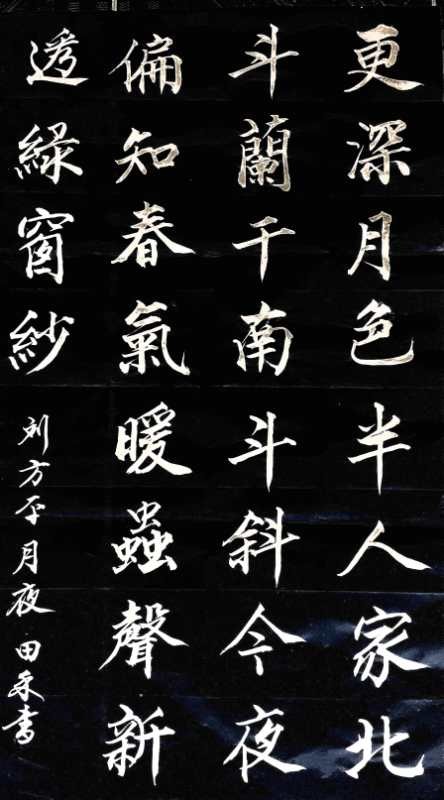 更深月色半人家北
斗蘭干南斗斜今夜
偏知春氣暖蟲聲新
透綠窗紗
刘方平月夜田禾書